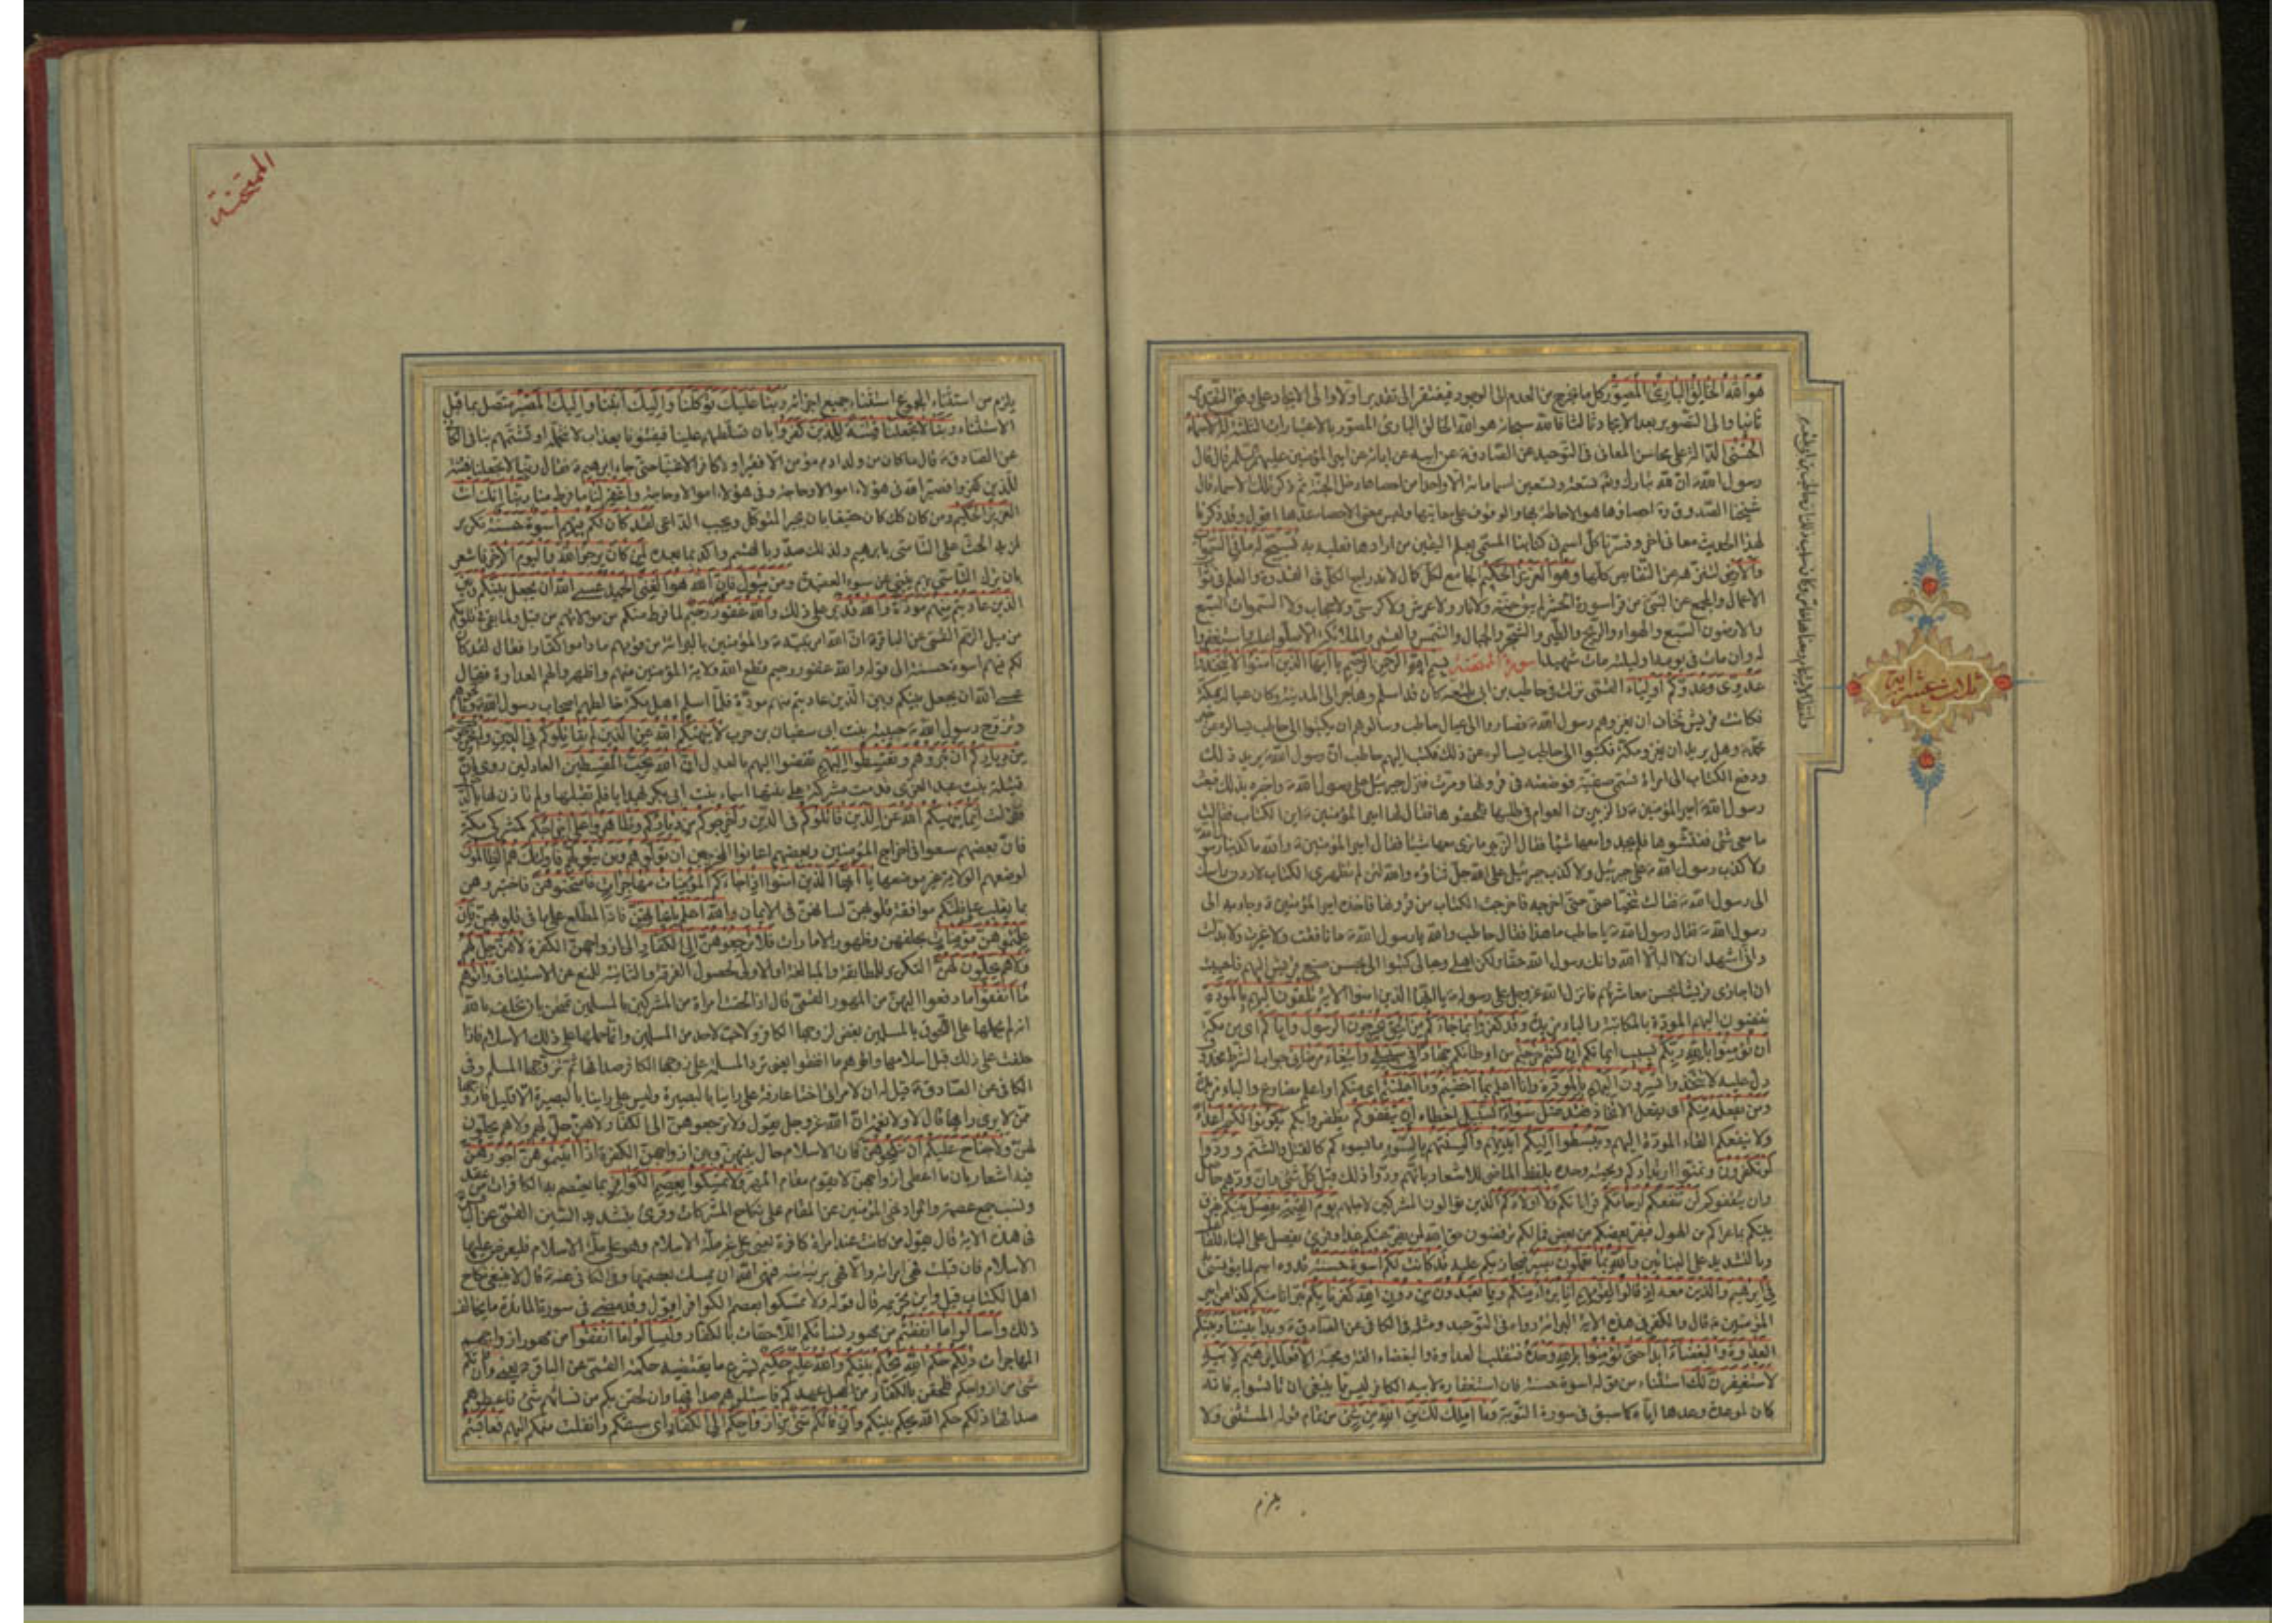 هو الله الخالق البارئ المصور كل ما يخرج من العدم الى الوجود فيفتقر الى تقدير اولا والى الايجاد على وفق التقدير
ثانيا والى التصوير بعد الايجاد ثالثا فالله سبحانه هو الله الخالق البارئ المصور بالاعتبارات الثلثة له الاسماء
الحسنى الدالة على محاسن المعانى فى التوحيد عن الصادق عن ابيه عن ابائه عن امير المؤمنين عليهم السلم قال قال
رسول الله ان لله تبارك وتعالى تسعة وتسعين اسما مائة الا واحدا من احصاها دخل الجنة ثم ذكر تلك الاسماء قال
شيخنا الصدوق ره احصاؤها هو الاحاطة بها والوقوف على معانيها وليس معنى الاحصاء عدها اقول وقد ذكرنا
لهذا الحديث معانى اخر وفسرنا كل اسم فى كتابنا المسمى بعلم اليقين من ارادها فعليه به يسبح له ما فى السموات
والارض لتنزهه عن النقائص كلها وهو العزيز الحكيم الجامع لكل كمال لاندراج الكل فى القدرة والعلم فى ثواب
الاعمال والمجمع عن النبى من قرأ سورة الحشر لم يبق جنة ولا نار ولا عرش ولا كرسى ولا حجاب ولا السموات السبع
والارضون السبع والهواء والريح والطير والشجر والجبال والشمس والقمر والملائكة الا صلوا عليه واستغفروا
له وان مات فى يومه او ليلته مات شهيدا سورة الممتحنة بسم الله الرحمن الرحيم يا ايها الذين امنوا لا تتخذوا
عدوى وعدوكم اولياء القمى نزلت فى حاطب بن ابى بلتعة كان قد اسلم وهاجر الى المدينة وكان عياله بمكة
فكانت قريش تخاف ان يغزوهم رسول الله فصاروا الى عيال حاطب وسالوهم ان يكتبوا الى حاطب يسالوه عن خبر
محمد وهل يريد ان يغزو مكة فكتبوا الى حاطب يسالونه عن ذلك فكتب اليهم حاطب ان رسول الله يريد ذلك
ودفع الكتاب الى امراة تسمى صفية فوضعته فى قرونها ومرت فنزل جبرئيل على رسول الله واخبره بذلك فبعث
رسول الله امير المؤمنين والزبير بن العوام فى طلبها فلحقوها فقال لها امير المؤمنين اين الكتاب فقالت
ما معى شئ ففتشوها فلم يجدوا معها شيئا فقال الزبير ما نرى معها شيئا فقال امير المؤمنين والله ما كذبنا رسول الله
ولا كذب رسول الله على جبرئيل ولا كذب جبرئيل على الله جل ثناؤه والله لئن لم تظهرى الكتاب لاردن راسك
الى رسول الله فقالت تنحيا حتى اخرجه فاخرجت الكتاب من قرونها فاخذه امير المؤمنين وجاء به الى
رسول الله فقال رسول الله يا حاطب ما هذا فقال حاطب والله يا رسول الله ما نافقت ولا غيرت ولا بدلت
وانى اشهد ان لا اله الا الله وانك رسول الله حقا ولكن اهلى وعيالى كتبوا الى بحسن صنيع قريش اليهم فاحببت
ان اجازى قريشا بحسن معاشرتهم فانزل الله عز وجل على رسوله يا ايها الذين امنوا الاية تلقون اليهم بالمودة
تفضون اليهم المودة بالمكاتبة والباء مزيدة وقد كفروا بما جاءكم من الحق يخرجون الرسول واياكم اى من مكة
ان تؤمنوا بالله ربكم بسبب ايمانكم ان كنتم خرجتم من اوطانكم جهادا فى سبيلى وابتغاء مرضاتى جواب الشرط محذوف
دل عليه لا تتخذوا تسرون اليهم بالمودة وانا اعلم بما اخفيتم وما اعلنتم اى منكم او اعلم مضارع والباء مزيدة
ومن يفعله منكم اى يفعل الاتخاذ فقد ضل سواء السبيل اخطاه ان يثقفوكم يظفروا بكم يكونوا لكم اعداء
ولا ينفعكم القاء المودة اليهم ويبسطوا اليكم ايديهم والسنتهم بالسوء ما يسوءكم كالقتل والشتم وودوا
لو تكفرون وتمنوا ارتدادكم ومجيئه وحده بلفظ الماضى للاشعار بانهم ودوا ذلك قبل كل شئ وان ودهم حاصل
وان يثقفوكم لن تنفعكم ارحامكم قراباتكم ولا اولادكم الذين توالون المشركين لاجلهم يوم القيمة يفصل بينكم يفرق
بينكم بما عراكم من الهول فيفر بعضكم من بعض فما لكم ترفضون حق الله لمن يفر عنكم غدا وقرئ يفصل على البناء للفاعل
وبالتشديد على البنائين والله بما تعملون بصير فيجازيكم عليه قد كانت لكم اسوة حسنة قدوة اسم لما يؤتسى به
فى ابرهيم والذين معه اذ قالوا لقومهم انا برءاؤا منكم ومما تعبدون من دون الله كفرنا بكم تبرانا منكم كذا عن امير
المؤمنين قال والكفر فى هذه الاية البراءة رواه فى التوحيد ومثله فى الكافى عن الصادق وبدا بيننا وبينكم
العداوة والبغضاء ابدا حتى تؤمنوا بالله وحده فتنقلب العداوة والبغضاء الفة ومحبة الا قول ابرهيم لابيه
لاستغفرن لك استثناء من قوله اسوة حسنة فان استغفاره لابيه الكافر ليس مما ينبغى ان تاتسوا به فانه
كان لموعدة وعدها اياه كما سبق فى سورة التوبة وما املك لك من الله من شئ من تمام قوله المستثنى ولا
يلزم
ثلاث عشر اية
الممتحنة
يلزم من استثناء المجموع استثناء جميع اجزائه ربنا عليك توكلنا واليك انبنا واليك المصير متصل بما قبل
الاستثناء ربنا لا تجعلنا فتنة للذين كفروا بان تسلطهم علينا فيفتنونا بعذاب لا نتحمله او تشمتهم بنا فى الكافى
عن الصادق قال ما كان من ولد ادم مؤمن الا فقيرا ولا كافر الا غنيا حتى جاء ابرهيم فقال ربنا لا تجعلنا فتنة
للذين كفروا فصير الله فى هؤلاء اموالا وحاجة وفى هؤلاء اموالا وحاجة واغفر لنا ما فرط منا ربنا انك انت
العزيز الحكيم ومن كان كك كان حقيقا بان يجير المتوكل ويجيب الداعى لقد كان لكم فيهم اسوة حسنة تكرير
لمزيد الحث على التاسى بابرهيم ولذلك صدر بالقسم واكد بما بعده لمن كان يرجوا الله واليوم الاخر فاشعر
بان ترك التاسى بهم ينبئ عن سوء العقيدة ومن يتول فان الله هو الغنى الحميد عسى الله ان يجعل بينكم وبين
الذين عاديتم منهم مودة والله قدير على ذلك والله غفور رحيم لما فرط منكم من موالاتهم من قبل ولما بقى فى قلوبكم
من ميل الرحم القمى عن الباقر ان الله امر نبيه والمؤمنين بالبراءة من قومهم ما داموا كفارا فقال لقد كان
لكم فيهم اسوة حسنة الى قوله والله غفور رحيم قطع الله ولاية المؤمنين منهم واظهروا لهم العداوة فقال
عسى الله ان يجعل بينكم وبين الذين عاديتم منهم مودة فلما اسلم اهل مكة خالطهم اصحاب رسول الله وناكحوهم
وتزوج رسول الله حبيبة بنت ابى سفيان بن حرب لا ينهيكم الله عن الذين لم يقاتلوكم فى الدين ولم يخرجوكم
من دياركم ان تبروهم وتقسطوا اليهم تفضوا اليهم بالعدل ان الله يحب المقسطين العادلين روى ان
قتيلة بنت عبد العزى قدمت مشركة على بنتها اسماء بنت ابى بكر بهدايا فلم تقبلها ولم تاذن لها بالدخول
فنزلت انما ينهيكم الله عن الذين قاتلوكم فى الدين واخرجوكم من دياركم وظاهروا على اخراجكم كمشركى مكة
فان بعضهم سعوا فى اخراج المؤمنين وبعضهم اعانوا المخرجين ان تولوهم ومن يتولهم فاولئك هم الظالمون
لوضعهم الولاية غير موضعها يا ايها الذين امنوا اذا جاءكم المؤمنات مهاجرات فامتحنوهن فاختبروهن
بما يغلب على ظنكم موافقة قلوبهن لسانهن فى الايمان والله اعلم بايمانهن فانه المطلع على ما فى قلوبهن فان
علمتموهن مؤمنات بحلفهن وظهور الامارات فلا ترجعوهن الى الكفار الى ازواجهن الكفرة لا هن حل لهم
ولا هم يحلون لهن التكرير للمطابقة والمبالغة او الاولى لحصول الفرقة والثانية للمنع عن الاستيناف واتوهم
ما انفقوا ما دفعوا اليهن من المهور القمى قال اذا لحقت امراة من المشركين بالمسلمين تمتحن بان تحلف بالله
انه لم يحملها على اللحوق بالمسلمين بغض لزوجها الكافر ولا حب لاحد من المسلمين وانما حملها على ذلك الاسلام فاذا
حلفت على ذلك قبل اسلامها واتوهم ما انفقوا يعنى ترد المسلمة على زوجها الكافر صداقها ثم تزوجها المسلم وفى
الكافى عن الصادق قيل له ان لامراتى اختا عارفة على راينا بالبصرة وليس على راينا بالبصرة الا قليل فازوجها
ممن لا يرى رايها قال لا ولا نعمة ان الله عز وجل يقول ولا ترجعوهن الى الكفار لا هن حل لهم ولا هم يحلون
لهن ولا جناح عليكم ان تنكحوهن فان الاسلام حال بينهن وبين ازواجهن الكفرة اذا اتيتموهن اجورهن
فيه اشعار بان ما اعطى ازواجهن لا يقوم مقام المهر ولا تمسكوا بعصم الكوافر بما يعتصم به الكافرات من عقد
وسبب جمع عصمة والمراد نهى المؤمنين عن المقام على نكاح المشركات وقرئ بتشديد السين القمى عن الباقر
فى هذه الاية قال يقول من كانت عنده امراة كافرة يعنى على غير ملة الاسلام وهو على ملة الاسلام فليعرض عليها
الاسلام فان قبلت فهى امراته والا فهى برية منه فنهى الله ان يمسك بعصمتها وفى الكافى عنه قال لا ينبغى نكاح
اهل الكتاب قيل واين تحريمه قال قوله ولا تمسكوا بعصم الكوافر اقول وقد مضى فى سورة المائدة ما يخالف
ذلك واسالوا ما انفقتم من مهور نسائكم اللاحقات بالكفار وليسالوا ما انفقوا من مهور ازواجهم
المهاجرات ذلكم حكم الله يحكم بينكم والله عليم حكيم يشرع ما يقتضيه حكمته القمى عن الباقر يعنى وان فاتكم
شئ من ازواجكم فلحقن بالكفار من اهل عهدكم فاسئلوهم صداقها وان لحقن بكم من نسائهم شئ فاعطوهم
صداقها ذلكم حكم الله يحكم بينكم وان فاتكم شئ من ازواجكم الى الكفار اى سبقكم وانفلت منكم اليهم فعاقبتم